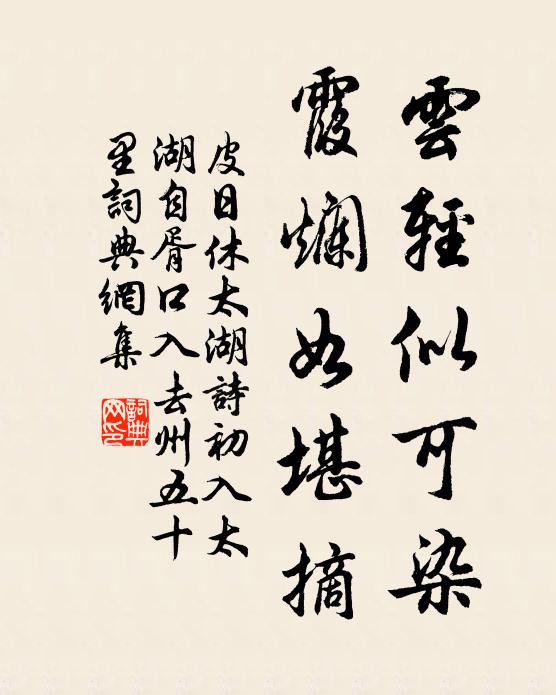 雲輕似可染
霞爛如堪摘
皮日休太湖詩初入太
湖自胥口入去州五十
里詞典網集
詞典
网印